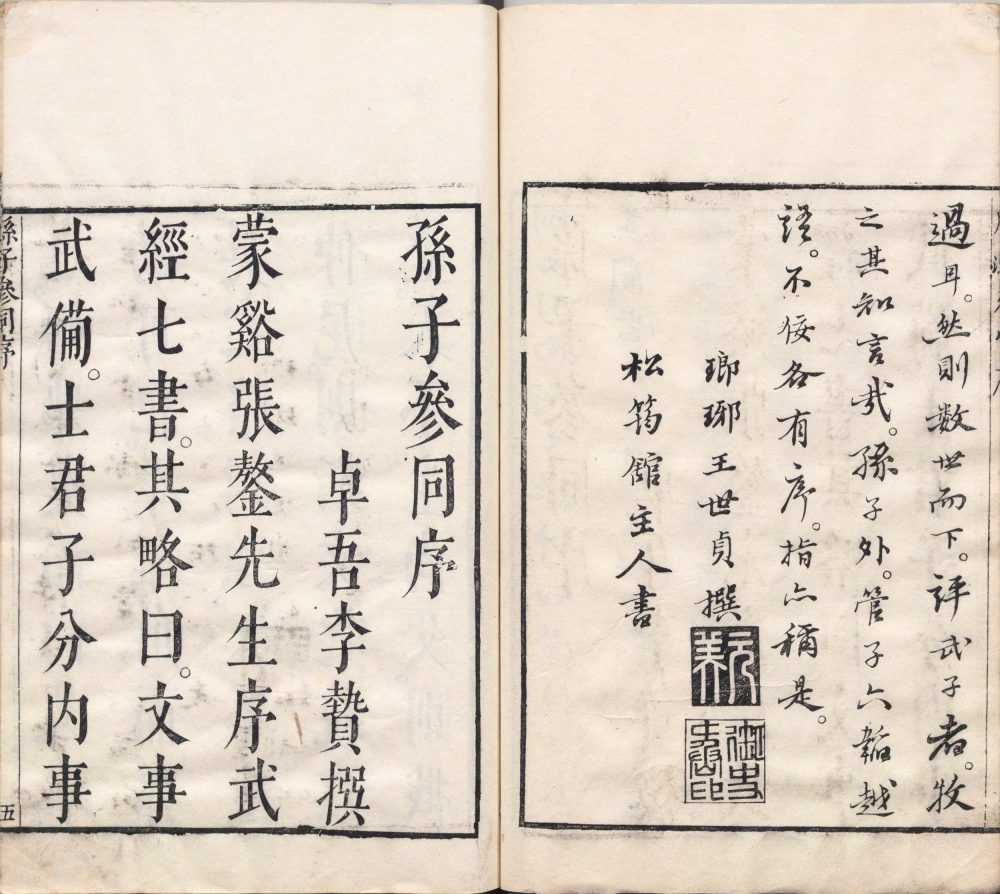 過耳。然則数世而下。評武子者。牧
之其知言哉。孫子外。管子六韜越
語。不佞各有序。指亦稱是。
瑯琊王世貞撰
松筠館主人書
孫子參同序
卓吾李贄撰
蒙谿張鏊先生序武
經七書。其略曰。文事
武備。士君子分内事
孫子參同序
五